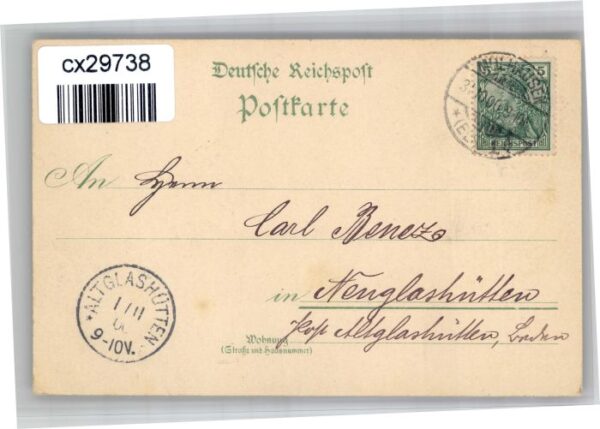 cx29738
Deutsche Reichspost
Postkarte
An Herrn
Carl Benez
in Neuglashütten
Altglashütten, Baden
Wohnung
(Straße und Hausnummer)
*ALTGLASHÜTTEN
1/11
00
9-10V.
MÜLHAUSEN
5
REICHSPOST